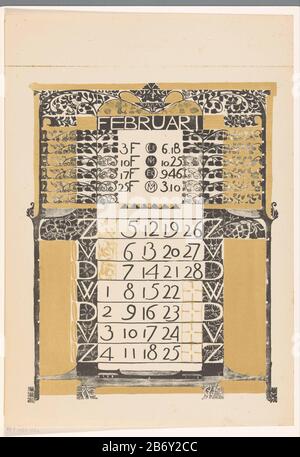 FEBRUARI
3F 6.18
10F M 10.25
17F 9.46
25F M 3.10
Z 5 12 19 26 Z
6 13 20 27
D 7 14 21 28 D
W 1 8 15 22 W
D 2 9 16 23 D
V 3 10 17 24 V
Z 4 11 18 25 Z
alamy
Image ID: 2B6Y2CC
www.alamy.com